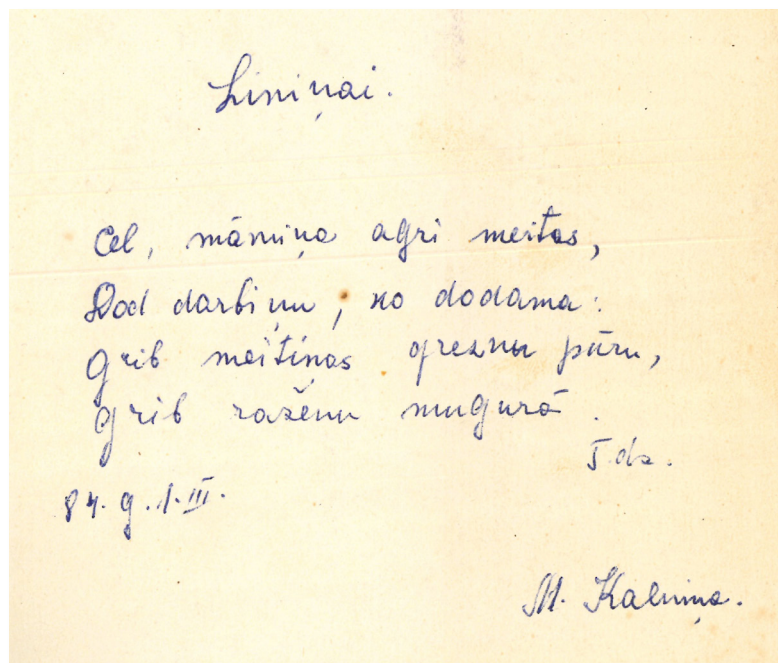 Liniņai.
Cel, māmiņa agri meitas,
Dod darbiņu, ko dodama:
Grib meitiņas greznu pūru,
Grib raženu mugurā.
T.dz.
84.g.1.III.
M. Kalniņa.